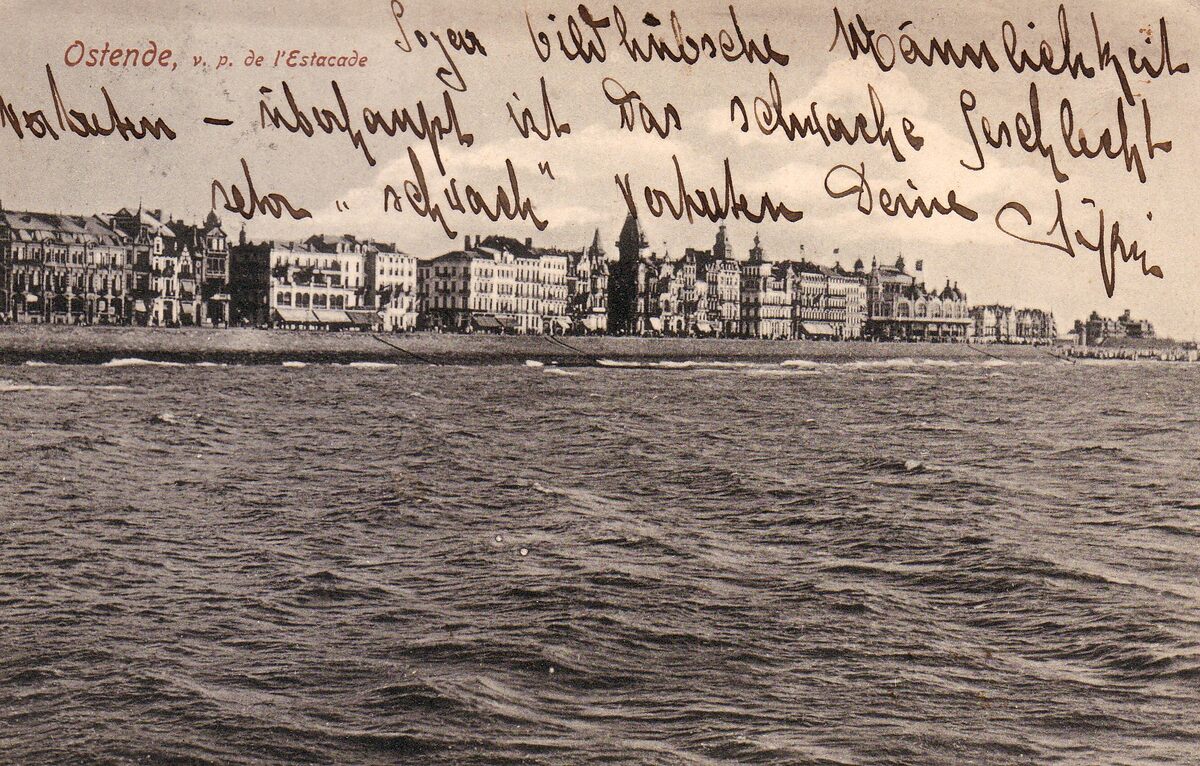 Ostende, v. p. de l'Estacade
Sogar bildhübsche Männlichkeit
vorbeten – überhaupt ist das schwache Geschlecht
sehr „schwach" vertreten Deine